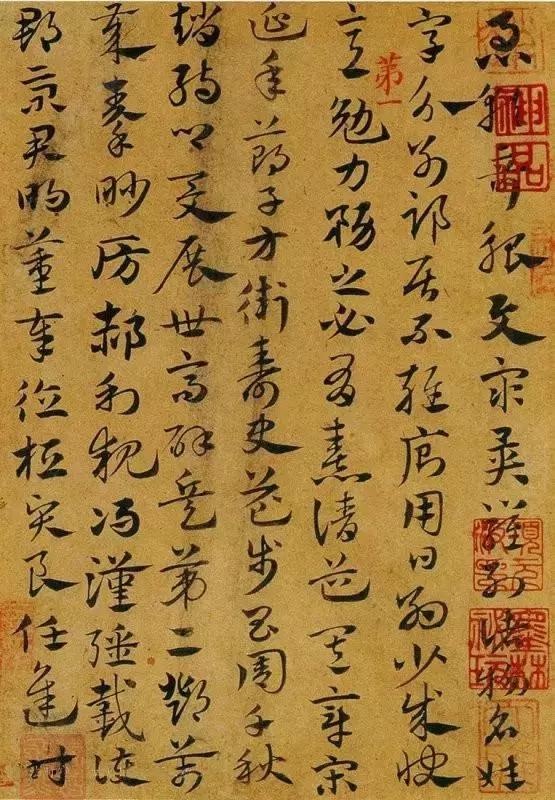 急就奇觚與衆異羅列諸物名姓
字分別部居不雜廁用日約少誠快
第一
意勉力務之必有憙請道其章宋
延年鄭子方衛壽史步昌周千秋
趙孺卿爰展世高辟兵第二鄧萬
歲秦眇房郝利親馮漢彊戴護
郡景君明董奉德桓賢良任逢時